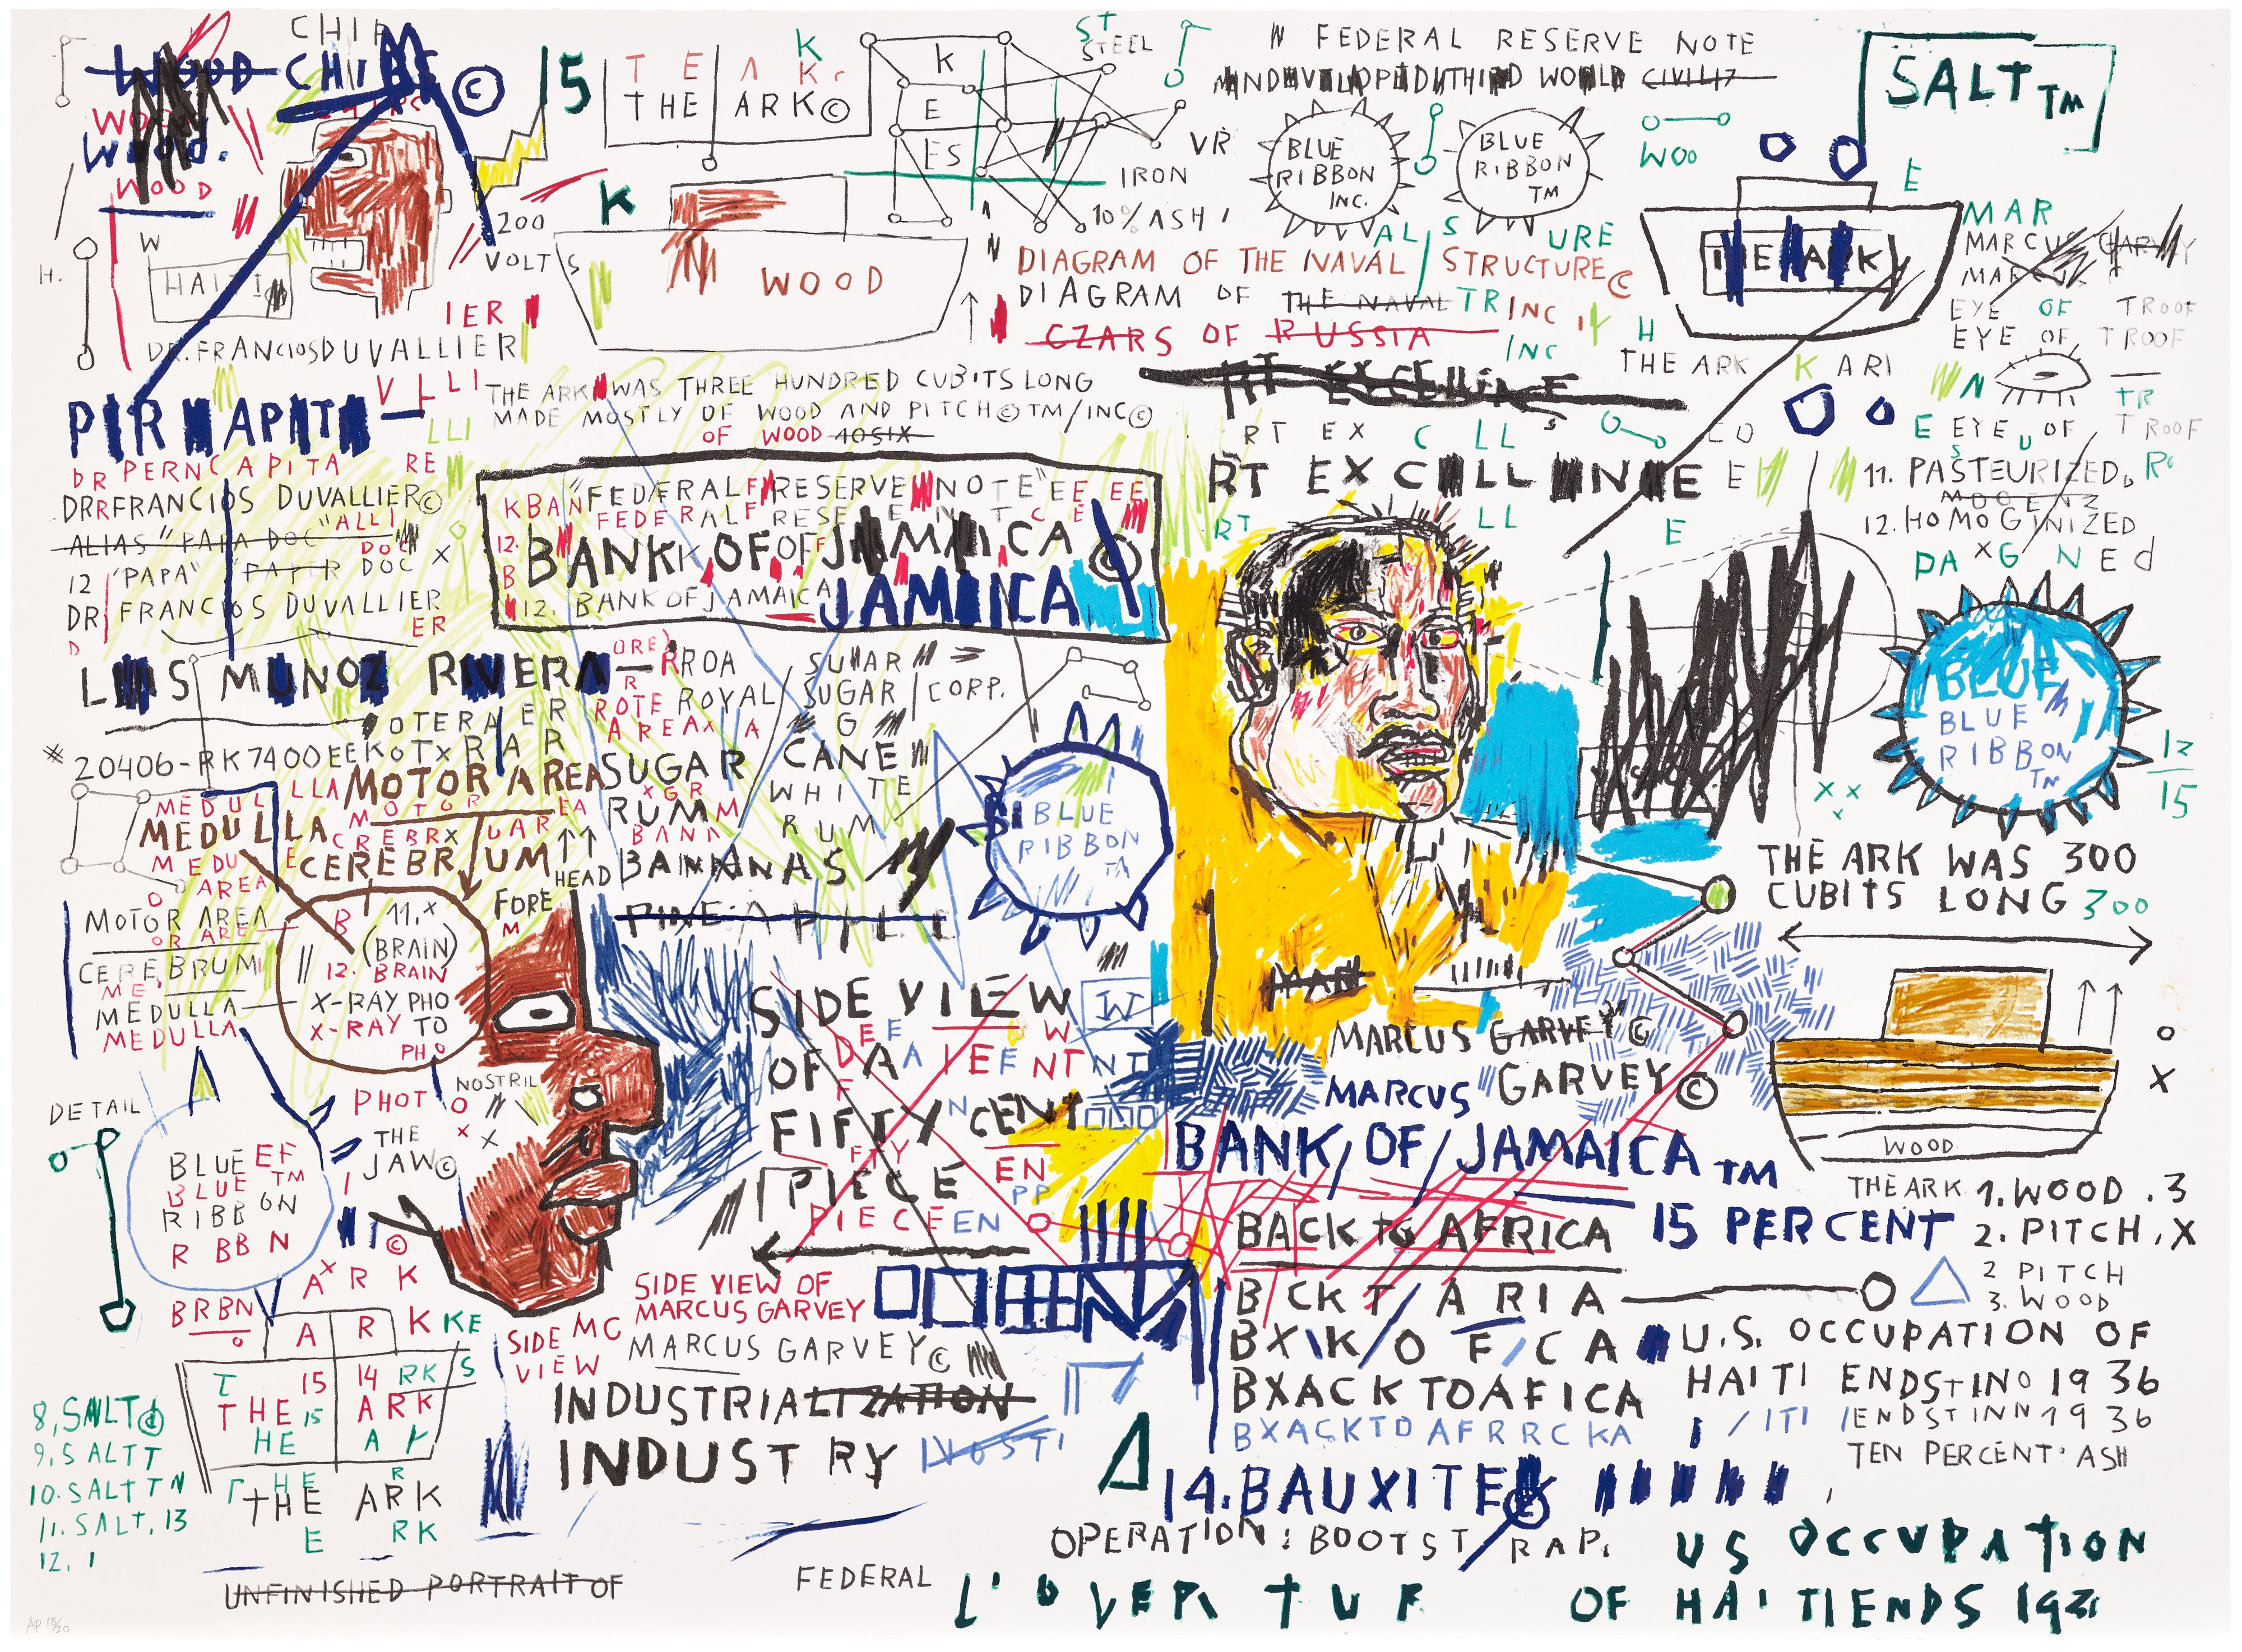 CHIP
WOOD CHI
©
15
WOOD
WOOD.
WOOD
W
H.
HAITI
200
VOLTS
DR. FRANCIOSDUVALLIER
IER
V LLI
T E A K
THE ARK©
K
K
E
ES
K
ST
STEEL
IRON
VR
10%/ASH
WOOD
FEDERAL RESERVE NOTE
THIRD WORLD
BLUE
RIBBON
INC.
BLUE
RIBBON
TM
WOO
SALT TM
E
THE ARK
MAR
MARCUS GARVEY
MARCUS
EYE OF TROOF
EYE OF TROOF
E EYE U OF TROOF
TR
DIAGRAM OF THE NAVAL STRUCTURE
AL S URE
DIAGRAM OF THE NAVAL TR INC
CZARS OF RUSSIA
INC
H
THE ARK
K ARI
THE ARK WAS THREE HUNDRED CUBITS LONG
MADE MOSTLY OF WOOD AND PITCH©TM/INC©
OF WOOD 40SIX
RT EXCELLINCE
RT EX C LL
RT EXCLL NE E
RT LL E
11. PASTEURIZED,
12. HOMOGINIZED
PA X G NEd
DR PERN CAPITA RE
LLI
DRRFRANCIOS DUVALLIER©
"ALLI
ALIAS "PAPA DOC"
DOC
12 "PAPA" PAPER DOC X
DR FRANCIOS DUVALLIER
ER
D
KBAN "FEDERALF RESERVE NOTE" EE EE
FEDERALF RESE E N T C E
12. BANKK OF OF JAMAICA ©
B
12. BANK OF JAMAICA JAMAICA
LUIS MUNOZ RIVERA
ORE
RROA
R
ROTE ROYAL
AREAX A
SUGAR
SUGAR CORP.
G
CANE
WHITE
RUM
OTERA ER
* 20406-RK7400EEKOTXRAR
MOTOR AREA
LLA
MOTOR EA
SUGAR
XGR
RUMM
BANA
BANANAS
MEDUL
MEDULLA
MEDU
O AREA
CREBRX UAR
E CEREBRUM
FORE HEAD
M
MOTOR AREA
OR AREA
CEREBRUM
ME,
MEDULLA
MEDULLA
B 11,X
(BRAIN)
12. BRAIN
X-RAY PHO
X-RAY TO
PHO
PHOT O
NOSTRIL
X X
THE
JAW©
DETAIL
BLUE EF
BLUE TM
RIBBON
R BB N
BRBN
O
BLUE
RIBBON
TM
BLUE
BLUE
RIBBON
TM
12
15
X X
X
SIDE VIEW
W
OF A
FIFTY CENT
FTY
EN
PP
PIECE
PIECE EN
SIDE VIEW OF
MARCUS GARVEY
MARCUS GARVEY©
SIDE MC
VIEW
INDUSTRIALIZATION
INDUSTRY
MAN
MARCUS GARVEY©
MARCUS GARVEY©
BANK/OF/JAMAICA TM
BACK to AFRICA
15 PERCENT
B CK T / A RIA
BX\K/O F/C A
BXACK TOAFICA
BXACKTOAFRRCKA
14. BAUXITE
OPERATION: BOOTSTRAP.
THE ARK WAS 300
CUBITS LONG 300
O
X
WOOD
THE ARK 1. WOOD .3
2. PITCH, X
2 PITCH
3. WOOD
U.S. OCCUPATION OF
HAITI ENDSTINO 1936
/ITI /ENDSTINN 1936
TEN PERCENT ASH
US OCCUPATION
OF HAITIENDS
©
A X R K
A R K KE
T 15 14 RK S
THE 15 ARK
HE A
HE R
THE ARK
E RK
8, SALT
9, SALTT
10. SALTTN
11. SALT, 13
12. 1
UNFINISHED PORTRAIT OF
FEDERAL
L'OVERTUF
AP 18/20